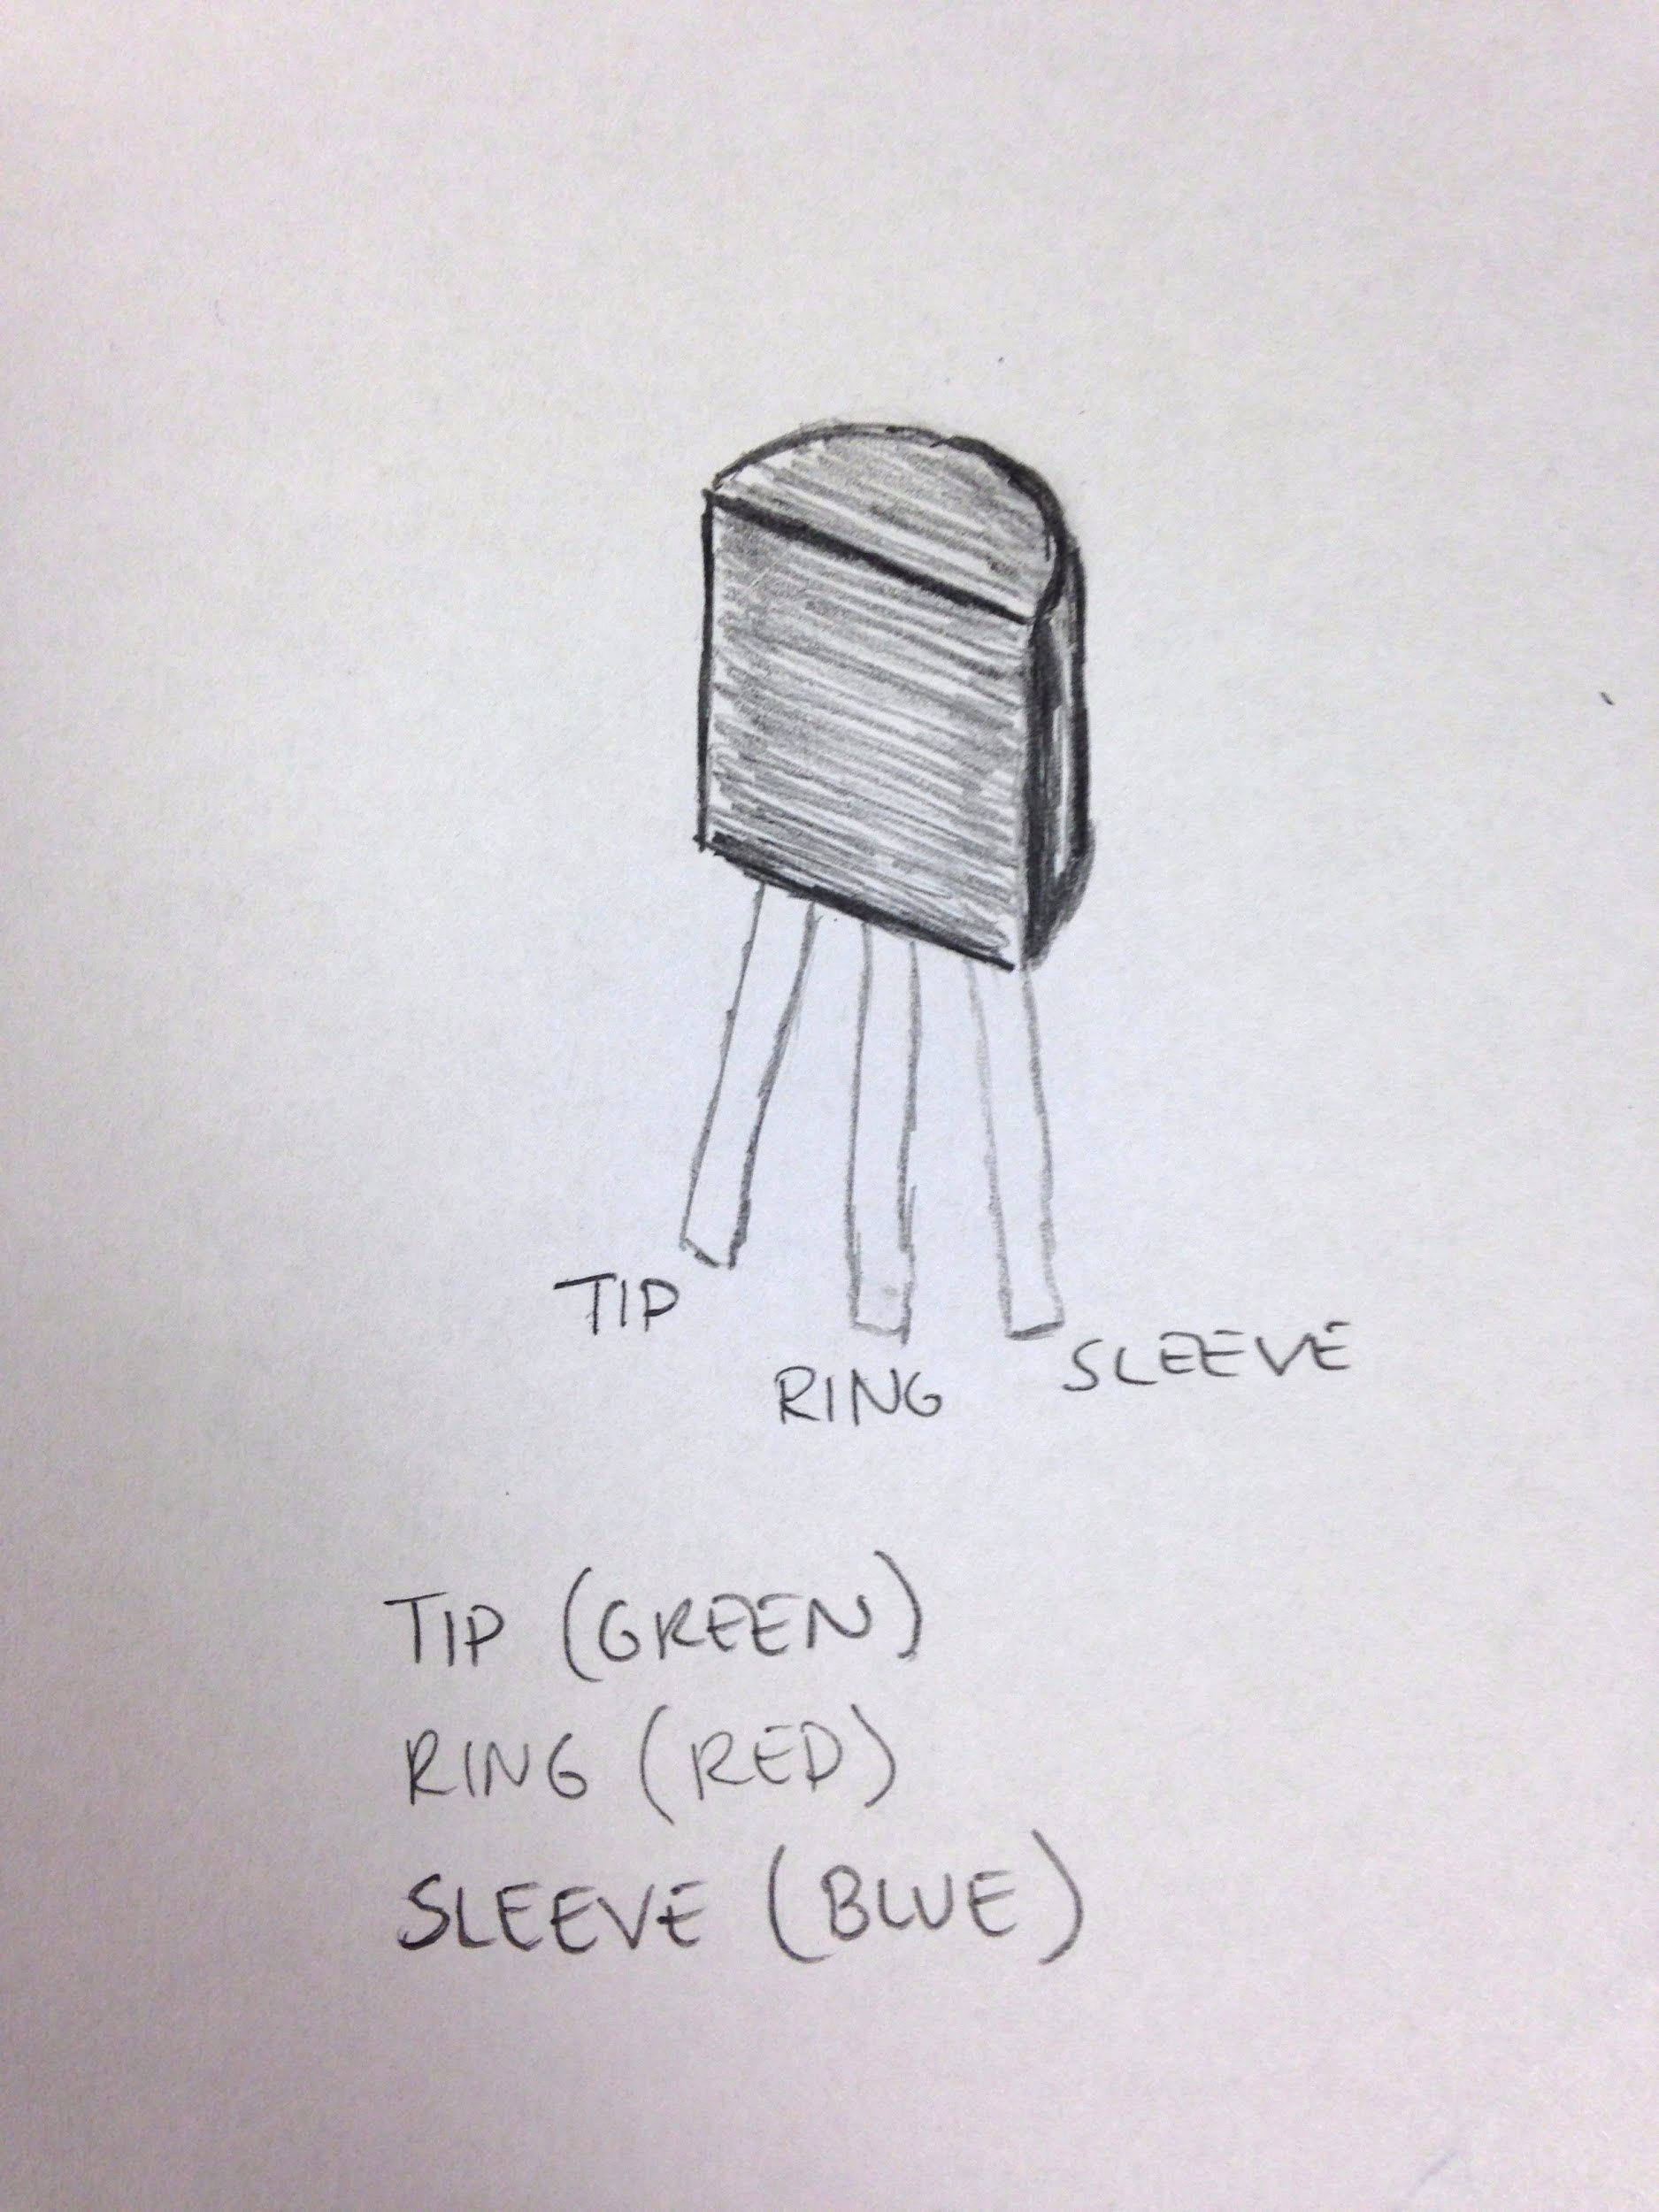 TIP
RING
SLEEVE
TIP (GREEN)
RING (RED)
SLEEVE (BLUE)